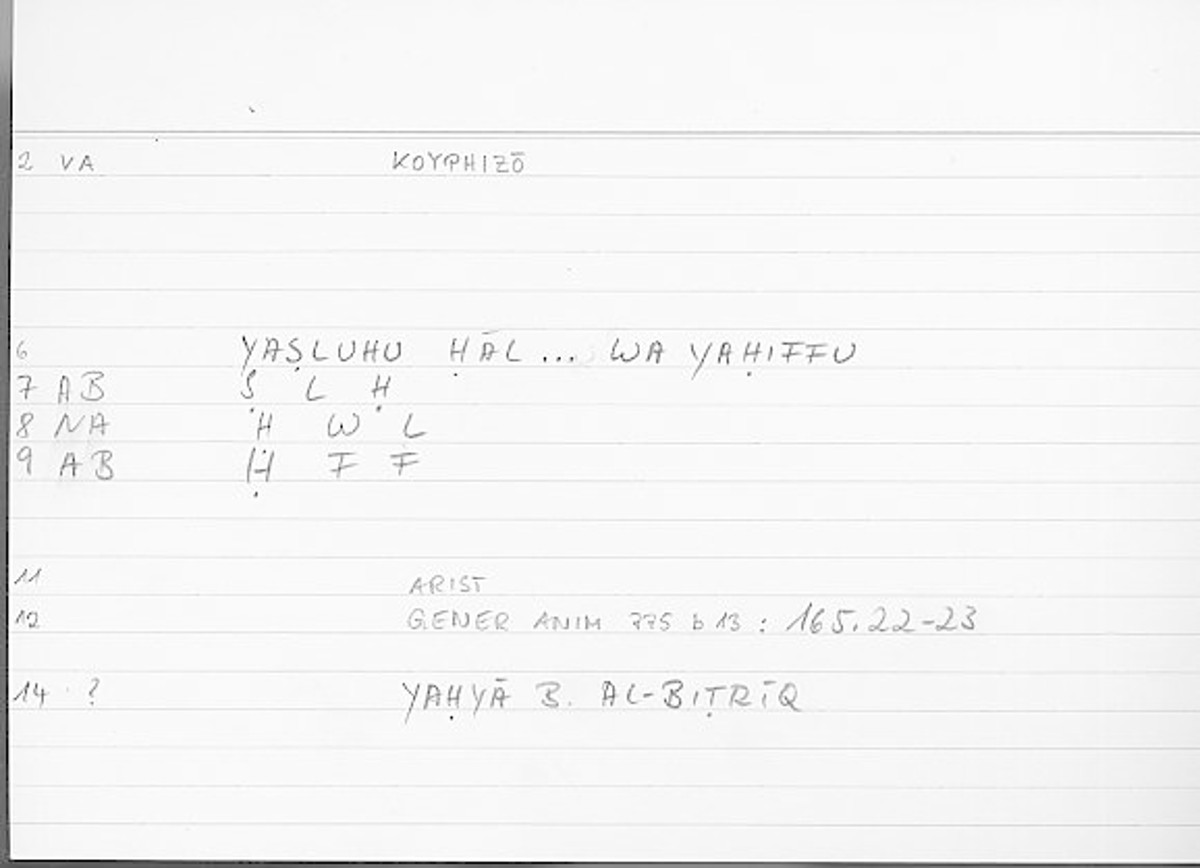 2 VA KOYPHIZŌ
6 YAṢLUHU ḤĀL ... WA YAḤIFFU
7 AB Ṣ L Ḥ
8 NA Ḥ W L
9 AB Ḥ F F
11 ARIST
12 GENER ANIM 775 b 13 : 165.22-23
14 ? YAḤYĀ B. AL-BIṬRĪQ